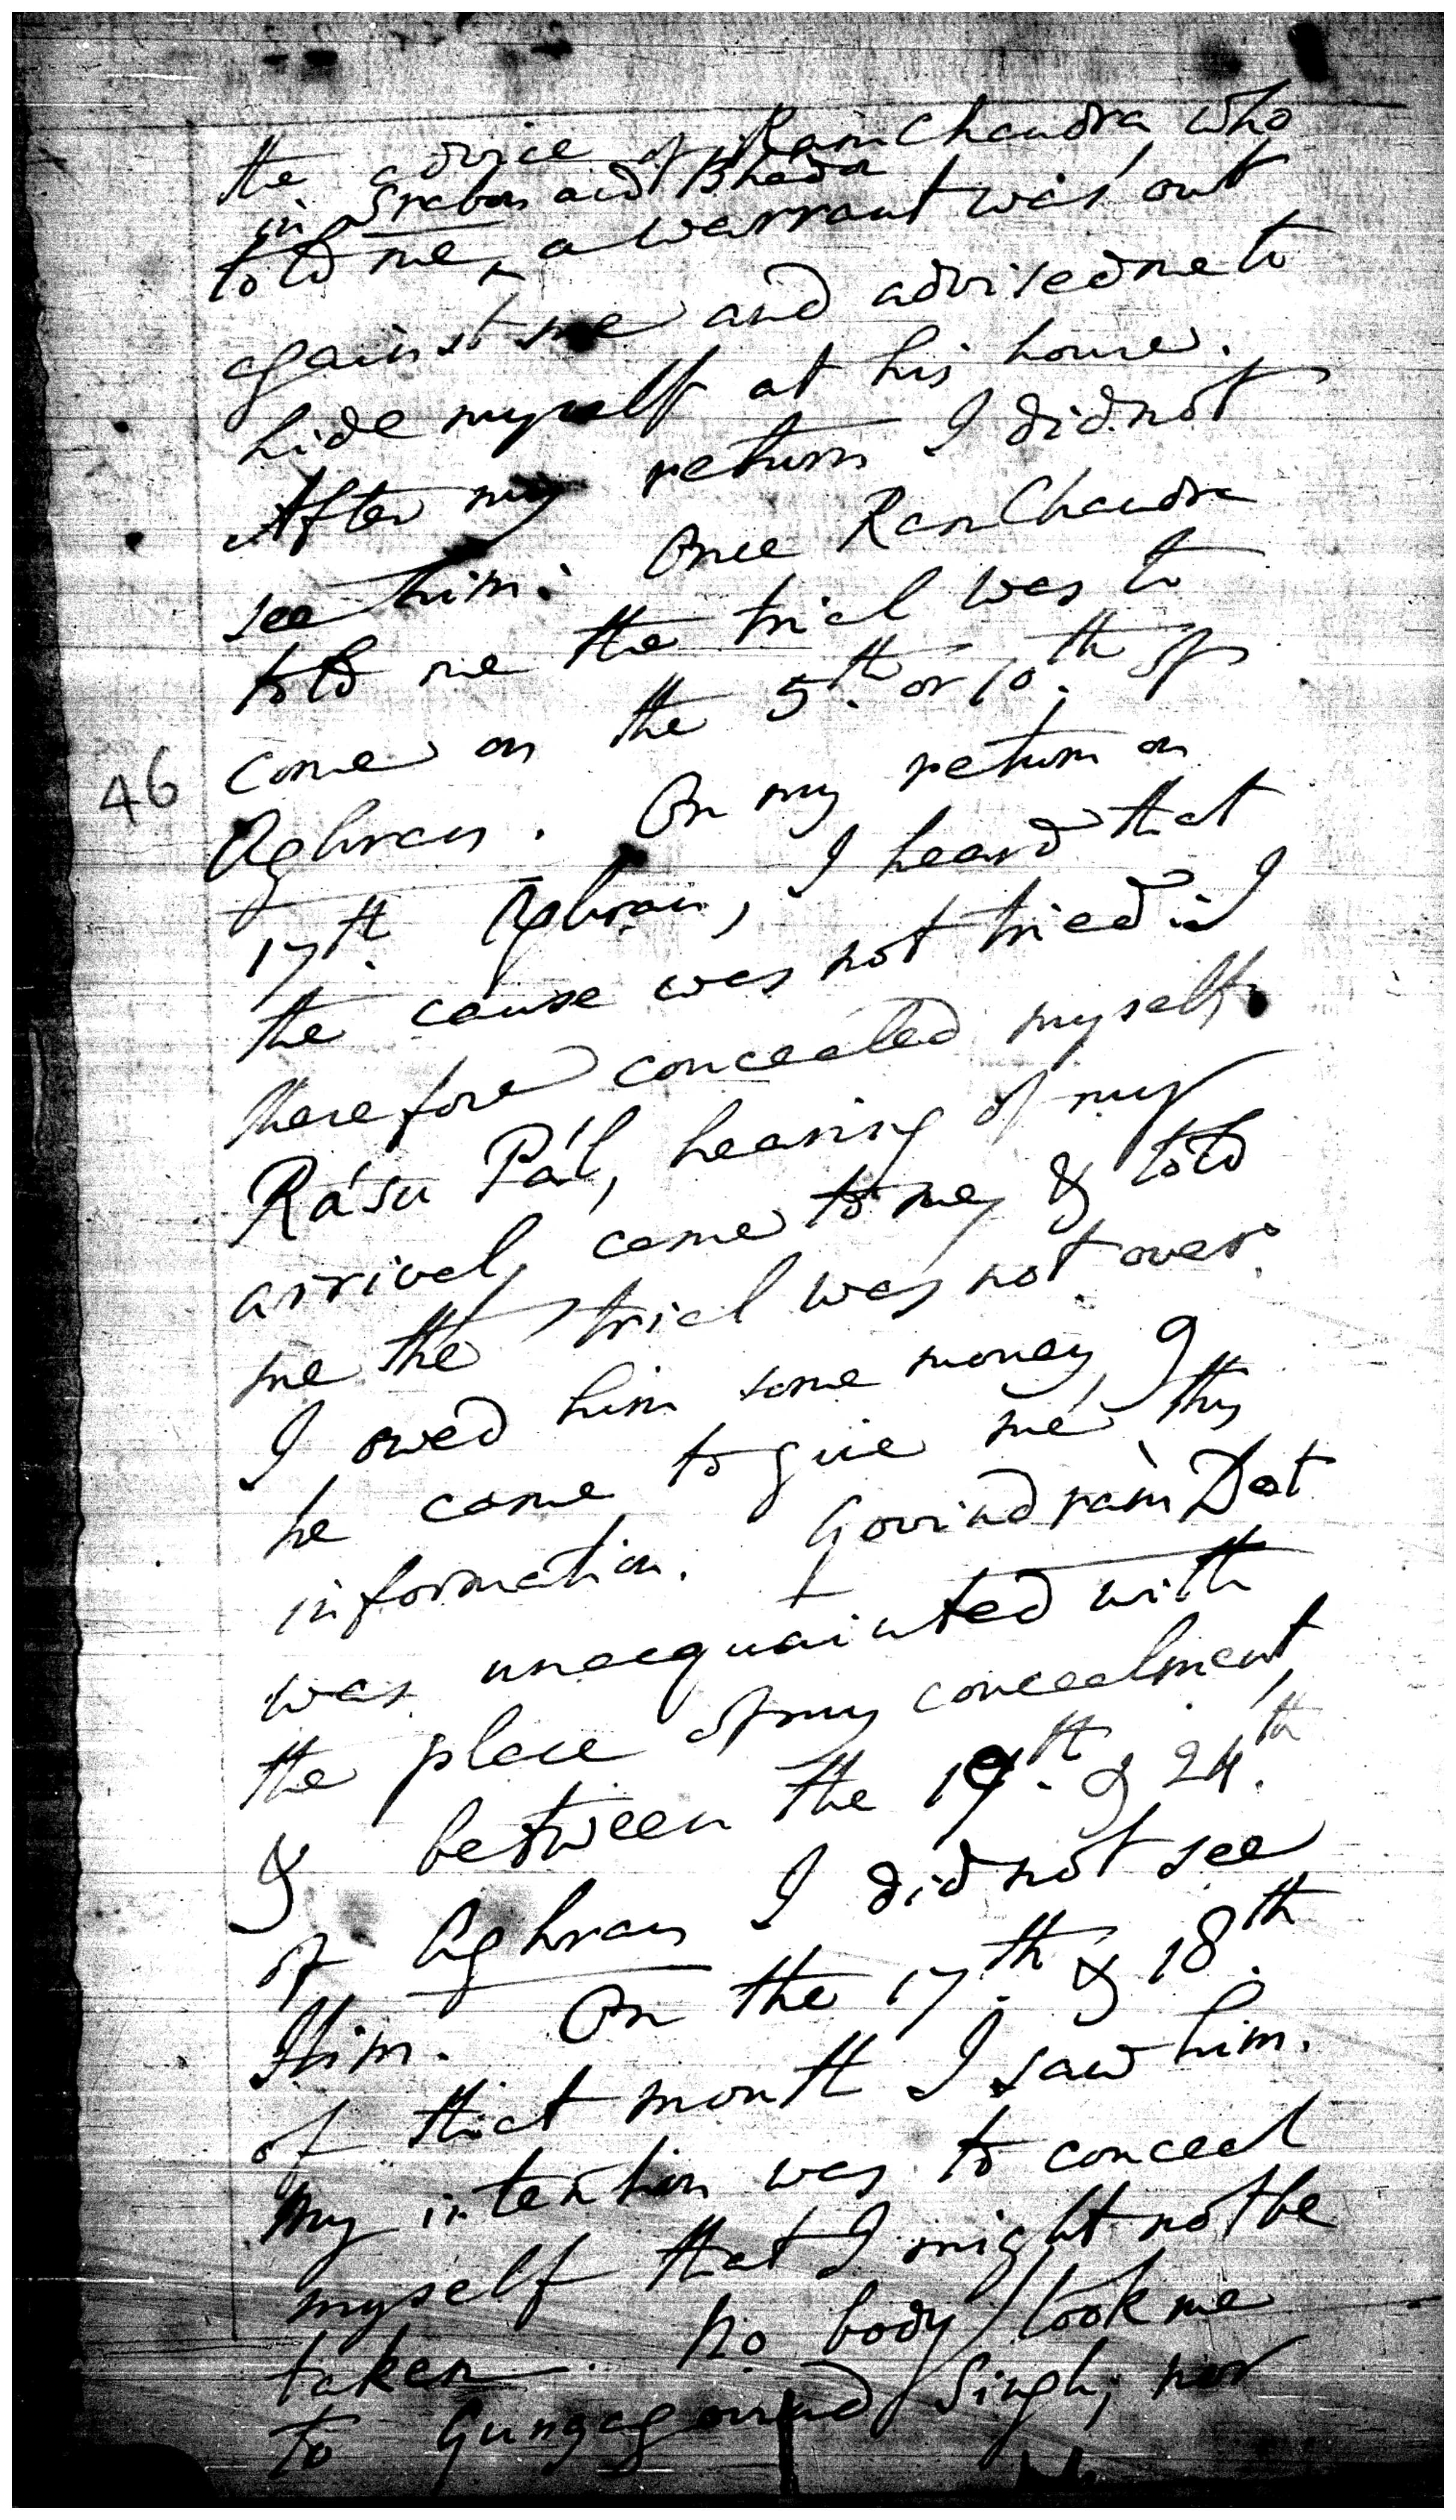 the advice of RamChandra, who
in Sraban and Bhadr
told me, ^ a warrant was out
against me and advised me to
hide myself at his house.
After my return I did not
see him. Once RamChandra
told me the trial was to
come on the 5th. or 10th. of
46
Aghran. On my return on
17th. Aghran, I heard that
the cause was not tried: I
therefore concealed myself.
Rásu Pál, hearing of my
arrival, came to me, & told
me the trial was not over.
I owed him some money, &
he came to give me this
information. Govindram Dat
was unacquainted with
the place of my concealment,
& between the 19th. & 24th.
of Aghran I did not see
Him. On the 17th. & 18th.
of that month I saw him.
My intention was to conceal
myself that I might not be
taken. No body took me
to Gungagovind Singh; nor